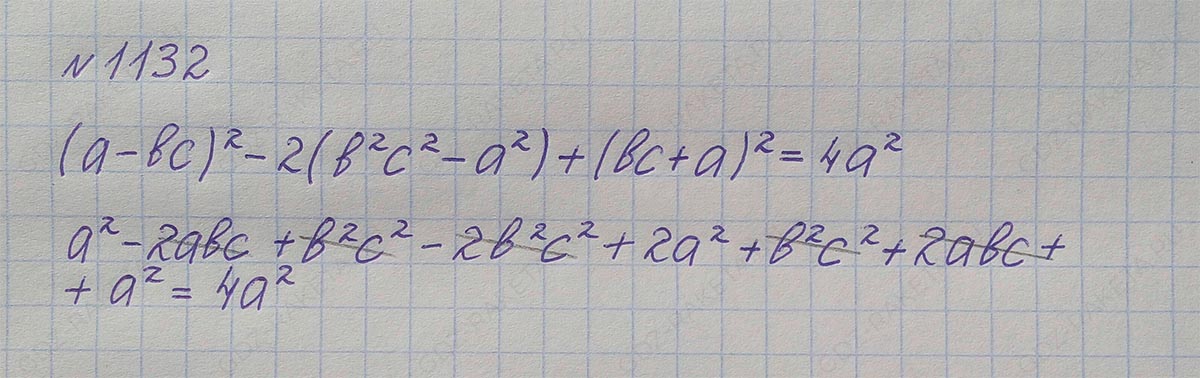 № 1132
(a-bc)² - 2(b²c² - a²) + (bc + a)² = 4a²
a² - 2abc + b²c² - 2b²c² + 2a² + b²c² + 2abc +
+ a² = 4a²